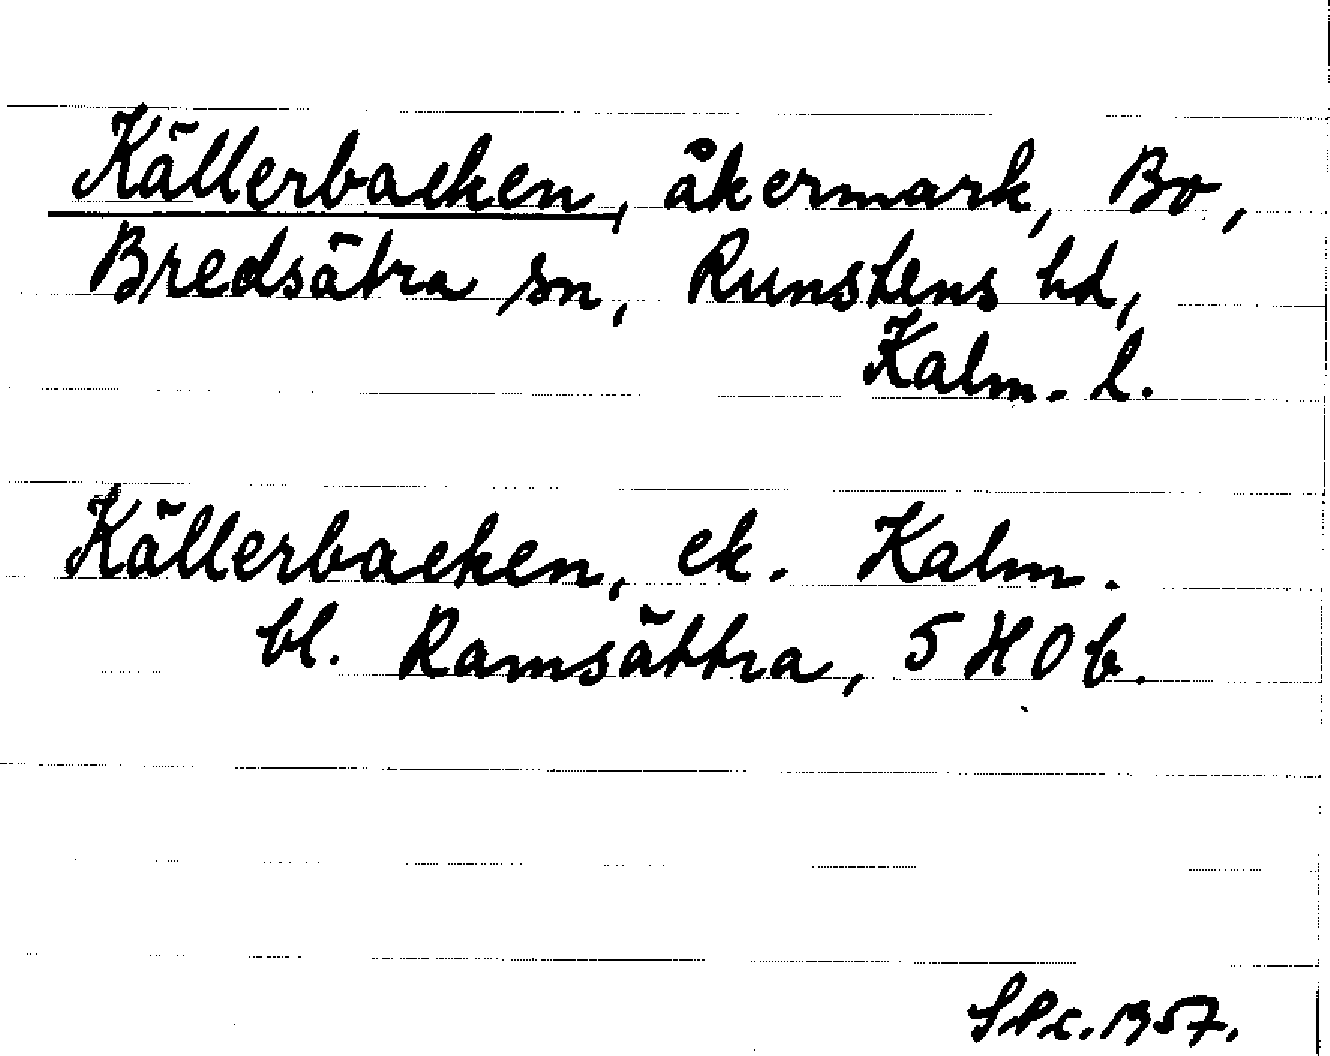 Källerbacken, åkermark, Bo,
Bredsätra sn, Runstens hd,
Kalm. l.
Källerbacken, ek. Kalm.
bl. Ramsättra, 5 H O b.
1957.